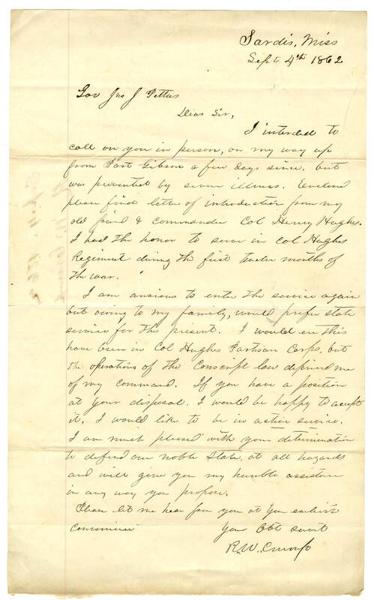 Sardis, Miss
Sept 4th 1862
Gov Jno J Pettus
Dear Sir,
I intended to
call on you in person, on my way up
from Port Gibson a few days since, but
was prevented by severe illness. Enclosed
please find letter of introduction from my
old friend & commander Col Henry Hughes.
I had the honor to serve in Col Hughes
Regiment during the first twelve months of
the war.
I am anxious to enter the service again
but owing to my family, would prefer state
service for the present. I would ere this
have been in Col Hughes Partisan Corps, but
the operation of the Conscript law deprived me
of my command. If you have a position
at your disposal I would be happy to accept
it. I would like to be in active service.
I am most pleased with your determination
to defend our noble State, at all hazards
and will give you my humble assistance
in any way you propose.
Please let me hear from you at your earliest
convenience
Your Obt Servt
R.W. Crump